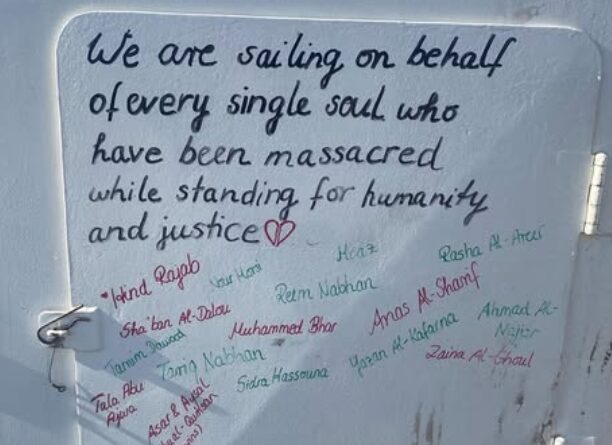 We are sailing on behalf
of every single soul who
have been massacred
while standing for humanity
and justice
Hind Rajab
Moaz
Rasha Al-Areer
Reem Nabhan
Sha'ban Al-Dalou
Muhammed Bhar
Anas Al-Sharif
Ahmad Al-
Najar
Tariq Nabhan
Yazan Al-Kafarna
Zaina Al-Ghoul
Sidra Hassouna
Tala Abu
Ajwa
Asar & Aysal